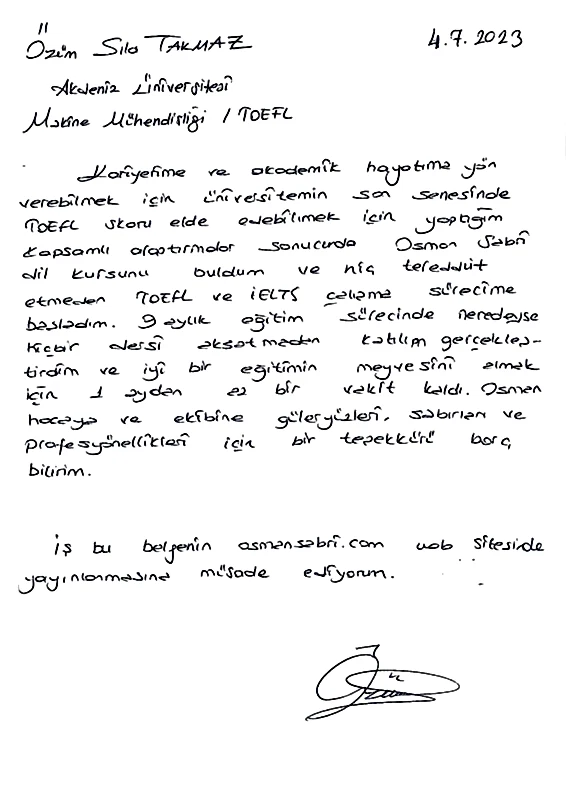 Özüm Sıla TAKMAZ 4.7.2023
Akdeniz Üniversitesi
Makine Mühendisliği / TOEFL
Kariyerime ve akademik hayatıma yön
verebilmek için üniversitemin son senesinde
TOEFL skoru elde edebilmek için yaptığım
kapsamlı araştırmalar sonucunda Osman Sabri
dil kursunu buldum ve hiç tereddüt
etmeden TOEFL ve iELTS çalışma sürecime
başladım. 9 aylık eğitim sürecinde neredeyse
hiçbir dersi aksatmadan katılım gerçekleş-
tirdim ve iyi bir eğitimin meyvesini almak
için 1 aydan az bir vakit kaldı. Osman
hocaya ve ekibine güleryüzleri, sabırları ve
profesyönellikleri için bir teşekkürü borç
bilirim.
iş bu belgenin osmansabri.com web sitesinde
yayınlanmasına müsade ediyorum.